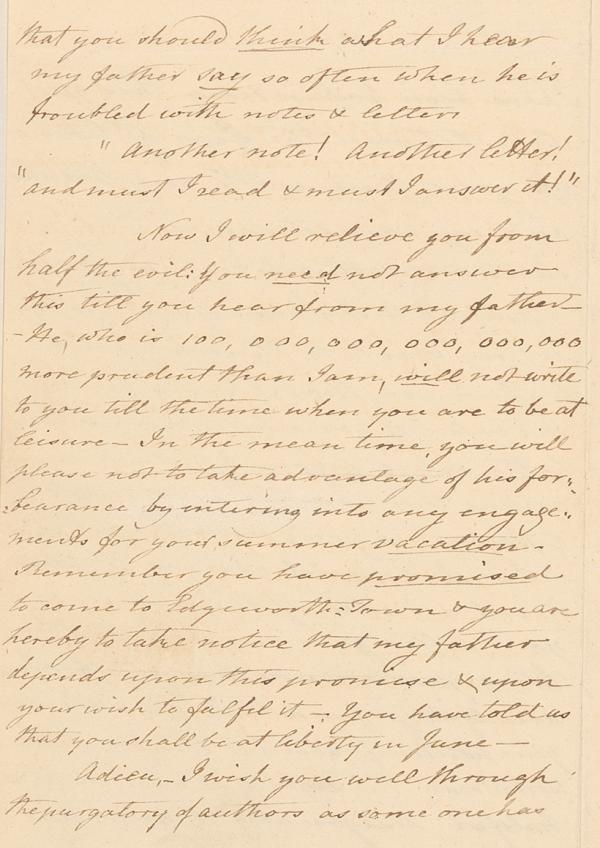 that you should think what I hear
my father say so often when he is
troubled with notes & letters
"Another note! Another letter!
"and must I read & must I answer it!"
Now I will relieve you from
half the evil: You need not answer
this till you hear from my father—
—He, who is 100,000,000,000,000,000
more prudent than I am, will not write
to you till the time when you are to be at
leisure— In the mean time, you will
please not to take advantage of his for=
=bearance by entering into any engage=
ments for your summer vacation—
Remember you have promised
to come to Edgeworth=Town & you are
hereby to take notice that my father
depends upon this promise & upon
your wish to fulfil it— You have told us
that you shall be at liberty in June—
Adieu,— I wish you well through
the purgatory of authors as some one has